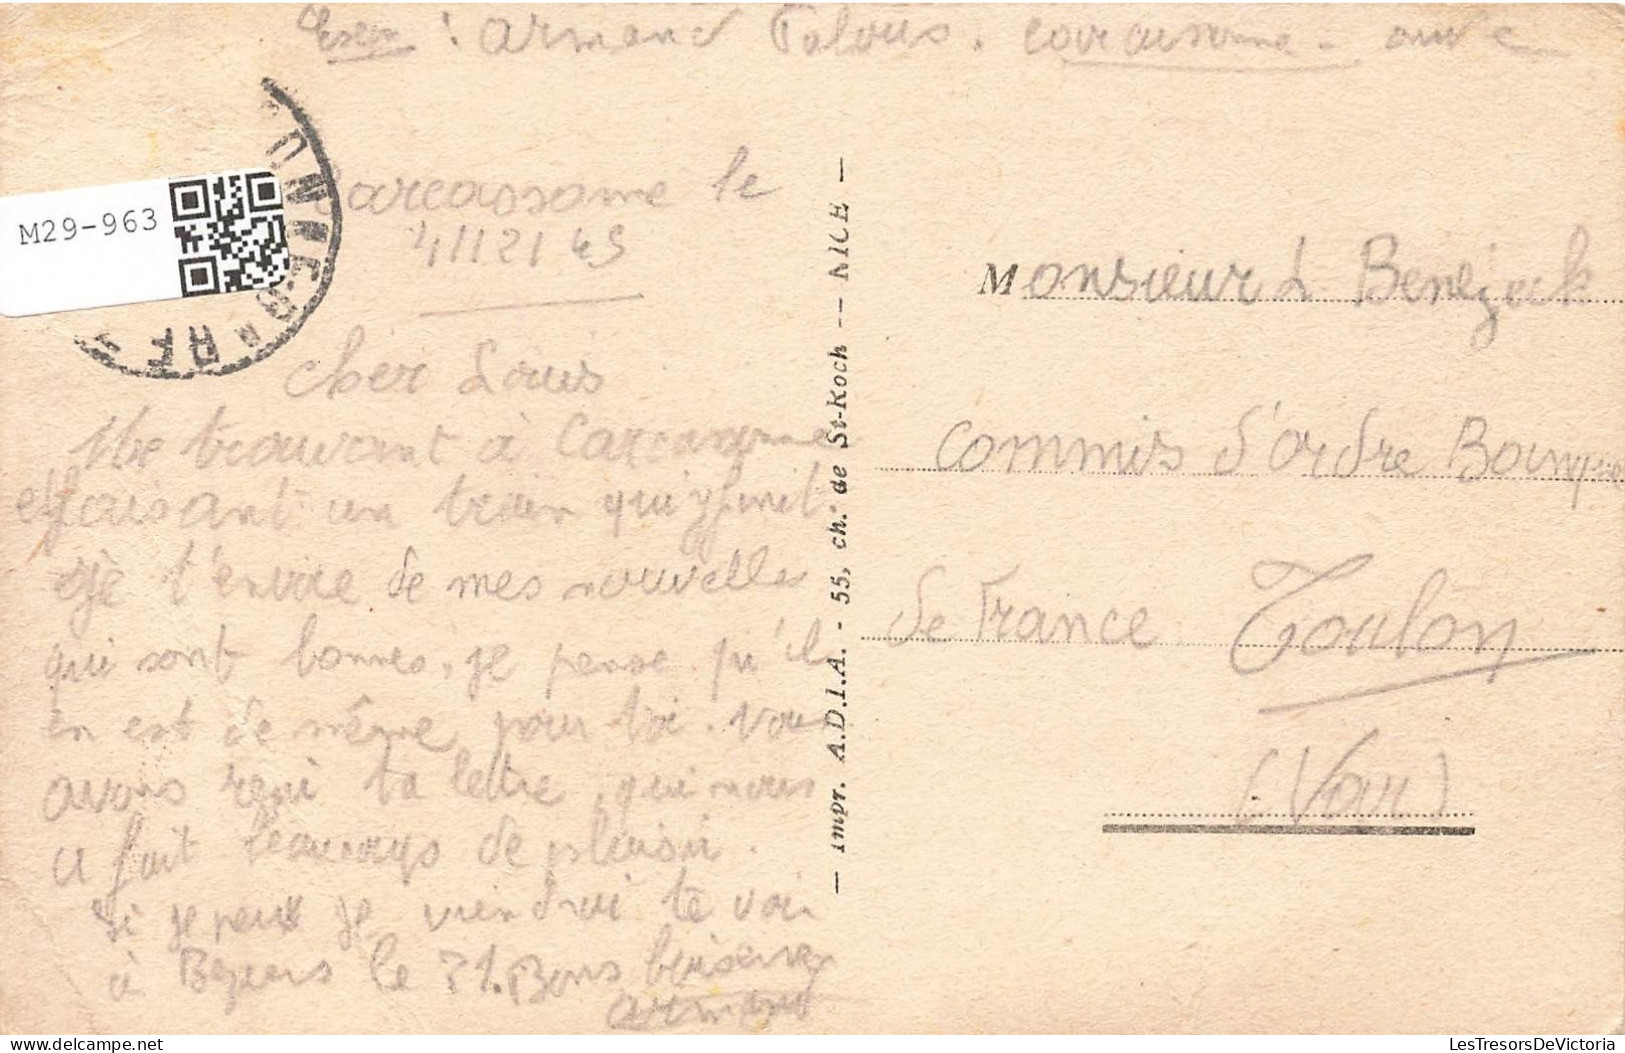 : Armand Palous. Carcassonne - Aude
M29-963
Carcassonne le
4112145
Cher Louis
Me trouvant à Carcassonne
et faisant un train qui y finit.
Je t'envoie de mes nouvelles
qui sont bonnes, je pense qu'il
en est de même pour toi. Nous
avons reçu ta lettre, qui nous
a fait beaucoup de plaisir.
Si je peux je viendrai te voir
à Beziers le 31. Bons baisers
Armand
— Impr. A.D.I.A. - 55, ch. de St-Roch -- NICE —
Monsieur L Benezech
Commis d'ordre Banque
de France Toulon
(Var)
RF
LesTresorsDeVictoria